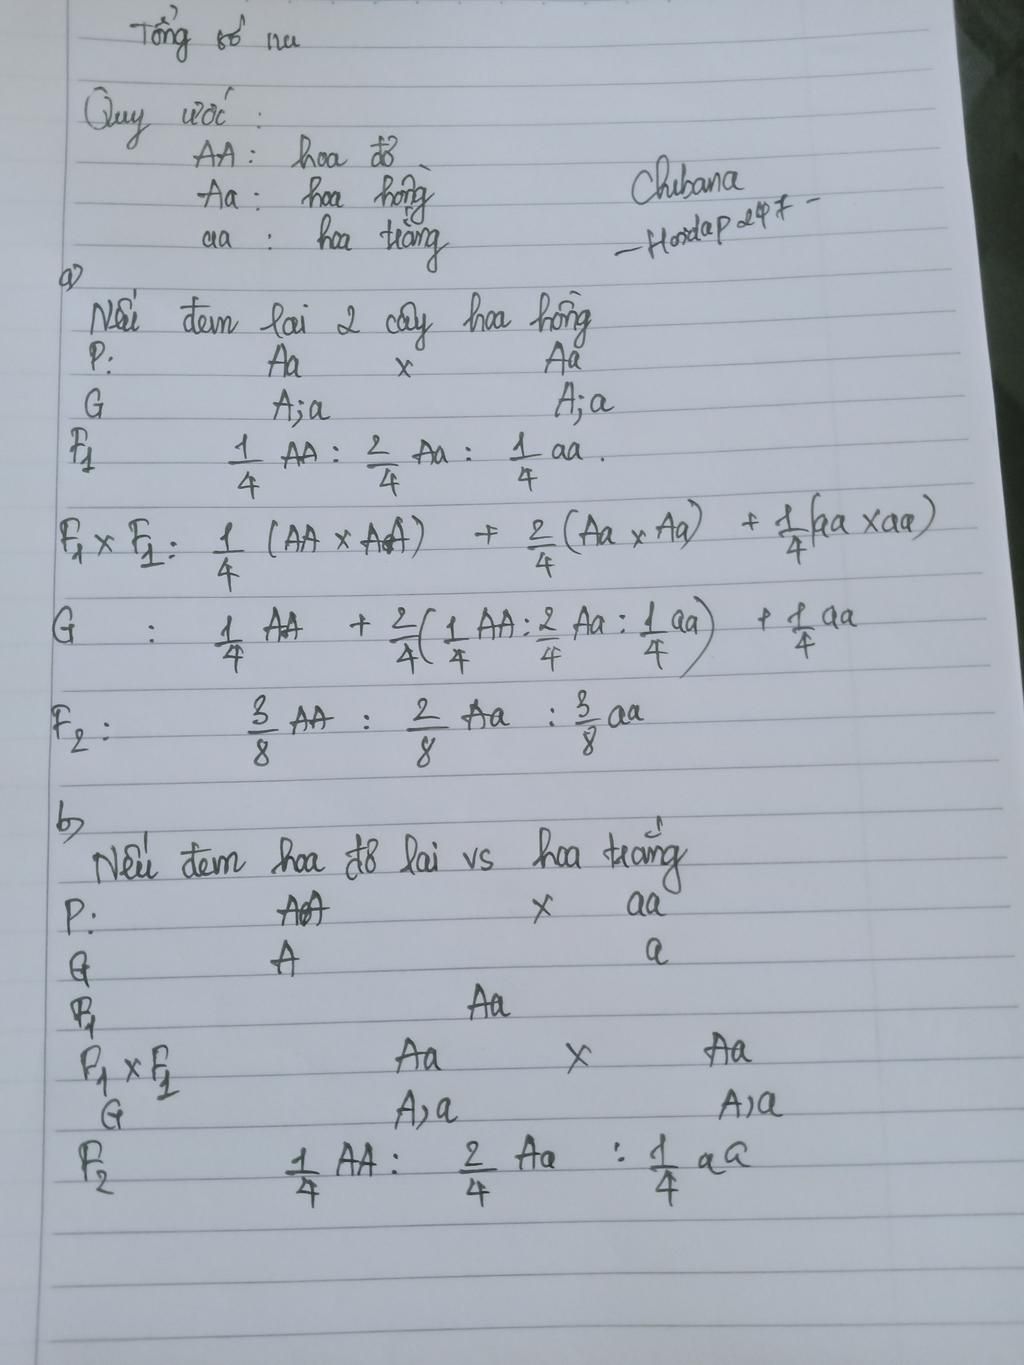 Tổng số nu
Quy ước :
AA : hoa đỏ
Aa : hoa hồng
aa : hoa trắng
Chibana
- Hoidap247 -
a)
Nếu đem lai 2 cây hoa hồng
P: Aa x Aa
G A;a A;a
F1 1/4 AA : 2/4 Aa : 1/4 aa.
F1 x F1: 1/4 (AA x AA) + 2/4 (Aa x Aa) + 1/4 (aa x aa)
G : 1/4 AA + 2/4 (1/4 AA : 2/4 Aa : 1/4 aa) + 1/4 aa
F2 : 3/8 AA : 2/8 Aa : 3/8 aa
b)
Nếu đem hoa đỏ lai vs hoa trắng
P: AA x aa
G A a
F1 Aa
F1 x F1 Aa x Aa
G A,a A,a
F2 1/4 AA : 2/4 Aa : 1/4 aa